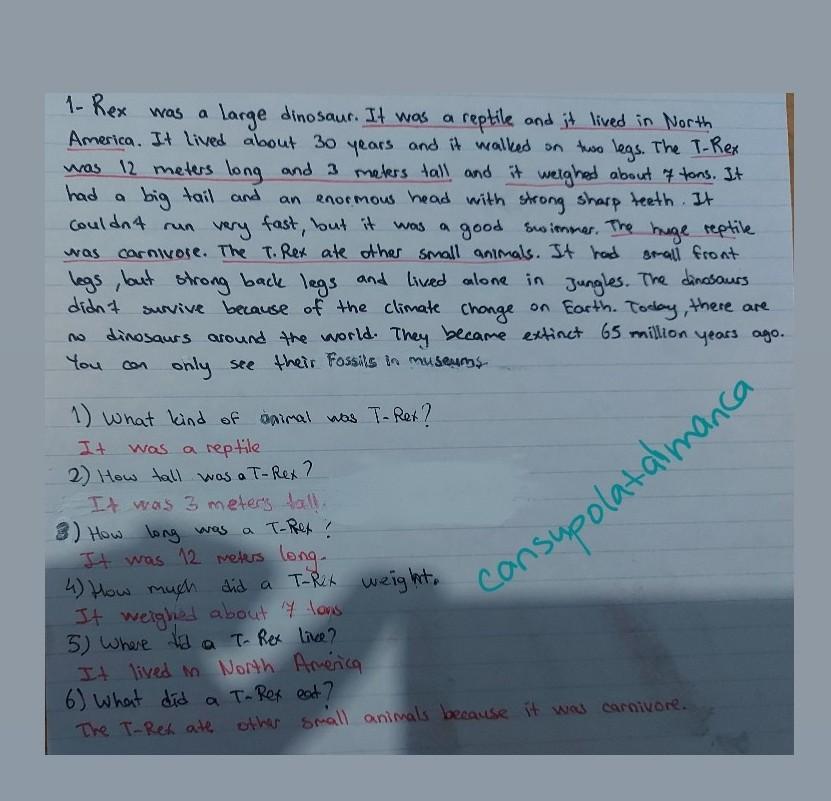 1- Rex was a large dinosaur. It was a reptile and it lived in North
America. It lived about 30 years and it walked on two legs. The T-Rex
was 12 meters long and 3 meters tall and it weighed about 7 tons. It
had a big tail and an enormous head with strong sharp teeth. It
couldn't run very fast, but it was a good swimmer. The huge reptile
was carnivore. The T.Rex ate other small animals. It had small front
legs, but strong back legs and lived alone in jungles. The dinosaurs
didn't survive because of the climate change on Earth. Today, there are
no dinosaurs around the world. They became extinct 65 million years ago.
You can only see their Fossils in museums
1) What kind of animal was T-Rex?
It was a reptile
2) How tall was a T-Rex?
It was 3 meters tall.
3) How long was a T-Rex?
It was 12 meters long.
4) How much did a T-Rex weight.
It weighed about 7 tons
5) Where did a T-Rex live?
It lived in North America
6) What did a T-Rex eat?
The T-Rex ate other small animals because it was carnivore.
cansupolatalmanca